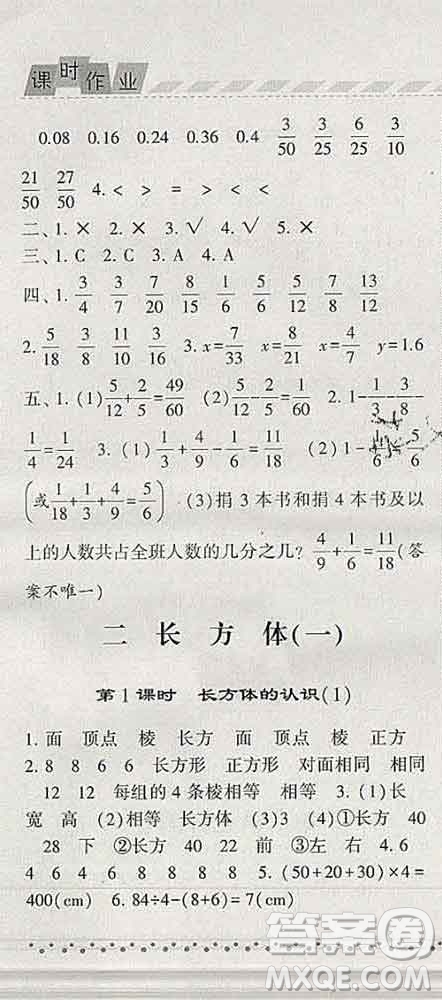 课时作业
0.08 0.16 0.24 0.36 0.4 3/50 3/25 6/25 3/10
21/50 27/50 4. < > = > < <
二、1. × 2. × 3. √ 4. √ 5. ×
三、1. C 2. C 3. A 4. A
四、1. 3/4 3/7 4/20 8/15 1/6 5/6 5/12 7/12 13/12
2. 5/18 3/8 11/10 3/16 3. x=7/33 x=8/21 x=4/7 y=1.6
五、1. (1) 5/12+2/5=49/60 (2) 5/12-2/5=1/60 2. 1-1/3-3/8-
1/4=1/24 3. (1) 1/3+4/9-1/6=11/18 (2) 1-1/6=5/6
(或1/18+1/3+4/9=5/6) (3)捐3本书和捐4本书及以
上的人数共占全班人数的几分之几? 4/9+1/6=11/18(答
案不唯一)
二 长 方 体(一)
第1课时 长方体的认识(1)
1. 面 顶点 棱 长方 面 顶点 棱 正方
2. 8 8 6 6 长方形 正方形 对面相同 相同
12 12 每组的4条棱相等 相等 3. (1)长
宽 高 (2)相等 长方体 (3) (4)①长方 40
28 下 ②长方 40 22 前 ③左 右 4. 6
4 6 4 6 8 8 8 8 5. (50+20+30)×4=
400(cm) 6. 84÷4-(8+6)=7(cm)
答案圈
MXQE.COM